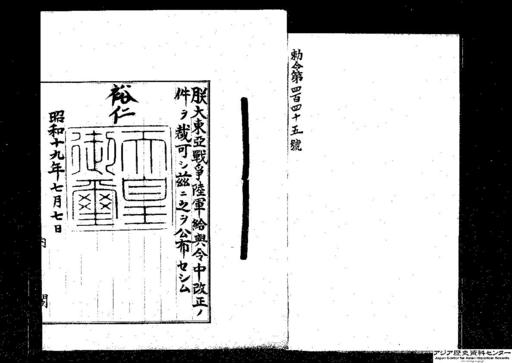 勅令第四百四十五號
朕大東亞戰爭陸軍給與令中改正ノ
件ヲ裁可シ茲ニ之ヲ公布セシム
裕仁
天皇
御璽
昭和十九年七月七日
内閣
アジア歴史資料センター
Japan Center for Asian Historical Records